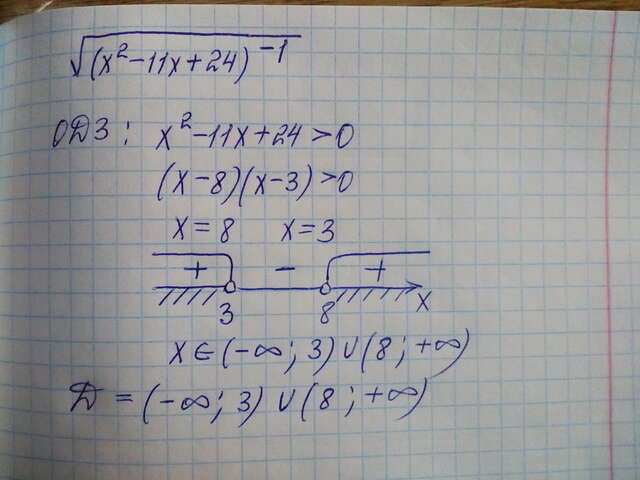 √(x²-11x+24)⁻¹
ОДЗ: x²-11x+24>0
(x-8)(x-3)>0
x=8 x=3
+ - +
3 8 x
x∈(-∞; 3)∪(8; +∞)
Д = (-∞; 3) ∪ (8; +∞)